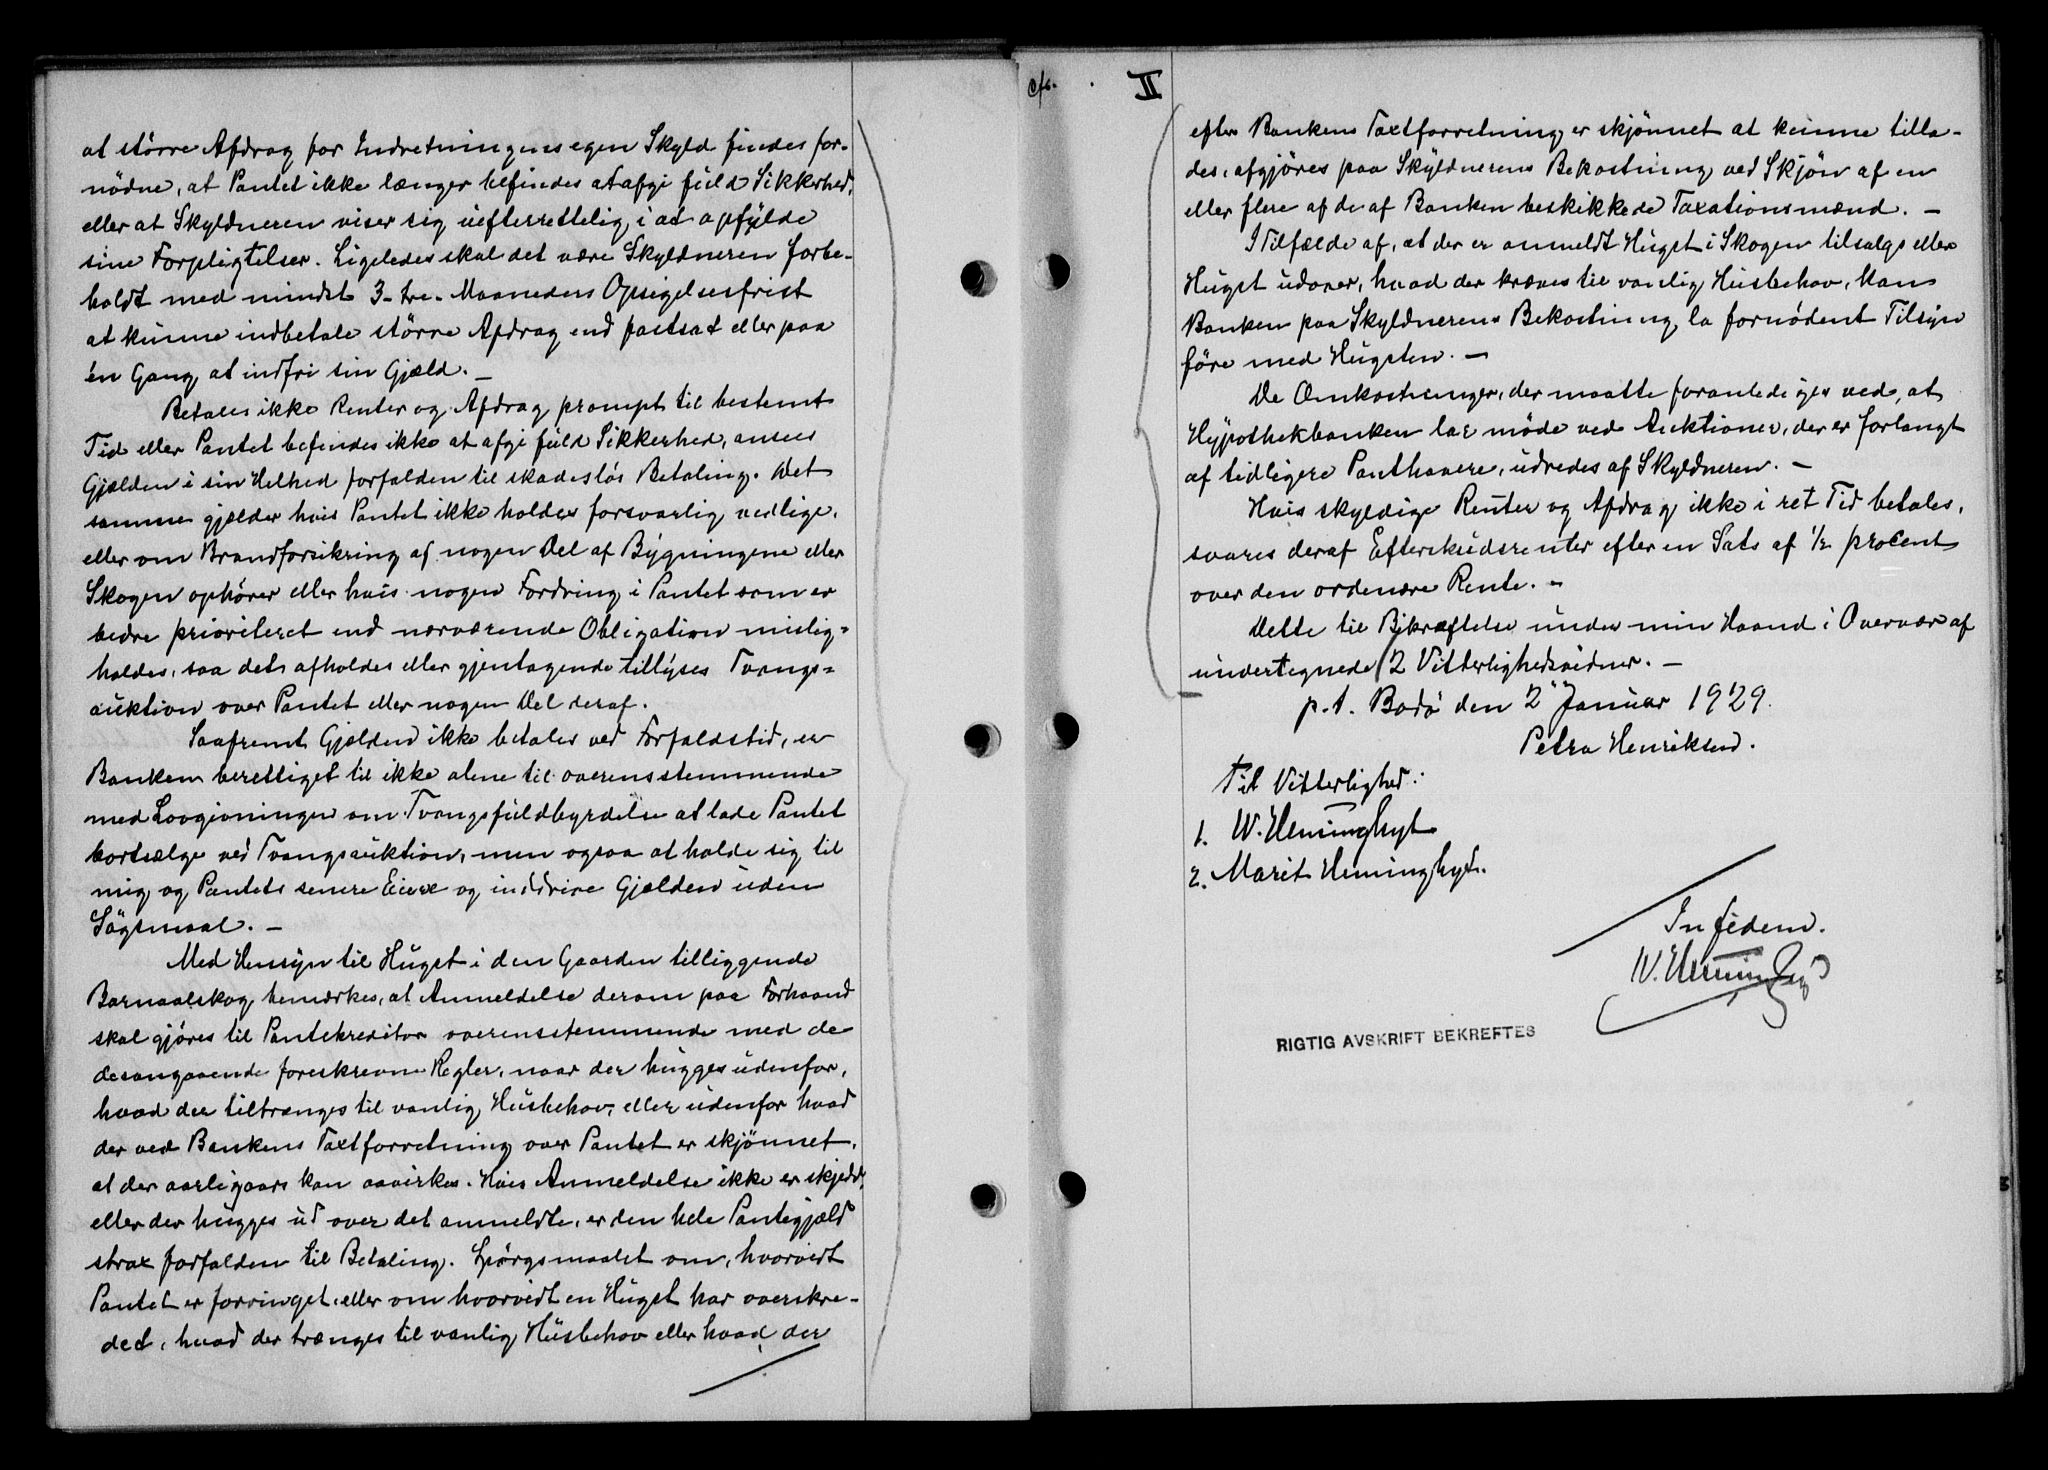 at större Afdrag for Indretningens egen Skyld findes for-
nödne, at Pantet ikke længer befindes at afgi fuld Sikkerhed,
eller at Skyldneren viser sig uefterrettelig i at opfylde
sine Forpligtelser. Ligeledes skal det være Skyldneren forbe-
holdt med mindst 3-tre-Maaneders Opsigelsesfrist
at kunne indbetale större Afdrag end fastsat eller paa
én Gang at indfri sin Gjæld. —
Betales ikke Renter og Afdrag prompt til bestemt
Tid eller Pantet befindes ikke at afgi fuld Sikkerhed, ansees
Gjælden i sin Helhed forfalden til skadeslös Betaling. Det
samme gjælder hvis Pantet ikke holdes forsvarlig vedlige,
eller om Brandforsikring af nogen Del af Bygningene eller
Skogen ophörer eller hvis nogen Fordring i Pantet som er
bedre prioriteret end nærværende Obligation mislig=
holdes, saa det afholdes eller gjentagende tillyses Tvangs=
auktion over Pantet eller nogen Del deraf.
Saafremt Gjælden ikke betales ved Forfaldstid, er
Banken berettiget til ikke alene til overensstemmende
med Lovgivningen om Tvangsfuldbyrdelse at lade Pantet
bortsælge ved Tvangsauktion, men ogsaa at holde sig til
mig og Pantets senere Eiere og inddrive Gjælden uden
Sögsmaal. —
Med Hensyn til Hugst i den Gaarden tilliggende
Barnaalskog bemærkes, at Anmeldelse derom paa Forhaand
skal gjöres til Pantekreditor overensstemmende med de
desangaaende foreskrevne Regler, naar der hugges udenfor,
hvad der tiltrænges til vanlig Husbehov, eller udenfor hvad
der ved Bankens Taxtforretning over Pantet er skjönnet,
at der aarligaars kan avvirkes. Hvis Anmeldelse ikke er skjedd,
eller der hugges ud over det anmeldte, er den hele Pantegjæld
strax forfalden til Betaling. Spörgsmaalet om, hvorvidt
Pantet er forringet eller om hvorvidt en Hugst har overskre-
det, hvad der trænges til vanlig Husbehov eller hvad der
cfr. II
efter Bankens Taxtforretning er skjönnet at kunne tilla-
des, afgjöres paa Skyldnerens Bekostning ved Skjön af en
eller flere af de af Banken beskikkede Taxationsmænd. —
I Tilfælde af, at der er anmeldt Hugst i Skogen tilsalgs eller
Hugst udover, hvad der kræves til vanlig Husbehov, kan
Banken paa Skyldnerens Bekostning la fornödent Tilsyn
före med Hugsten. —
De Omkostninger, der maatte foranlediges ved, at
Hypothekbanken lar möde ved Auktioner, der er forlangt
af tidligere Panthavere, udredes af Skyldneren. —
Hvis skyldige Renter og Afdrag ikke i ret Tid betales,
svares deraf Efterskudsrenter efter en Sats af ½ procent
over den ordenære Rente. —
Dette til Bekræftelse under min Haand i Overvær af
undertegnede 2 Vitterlighedsvidner. —
p.t. Bodö den 2 Januar 1929.
Petra Henriksen.
Til Vitterlighed:
1. W. Heminghyt
2. Marit Heminghyt.
In fidem.
W. Heminghyt
RIGTIG AVSKRIFT BEKREFTES